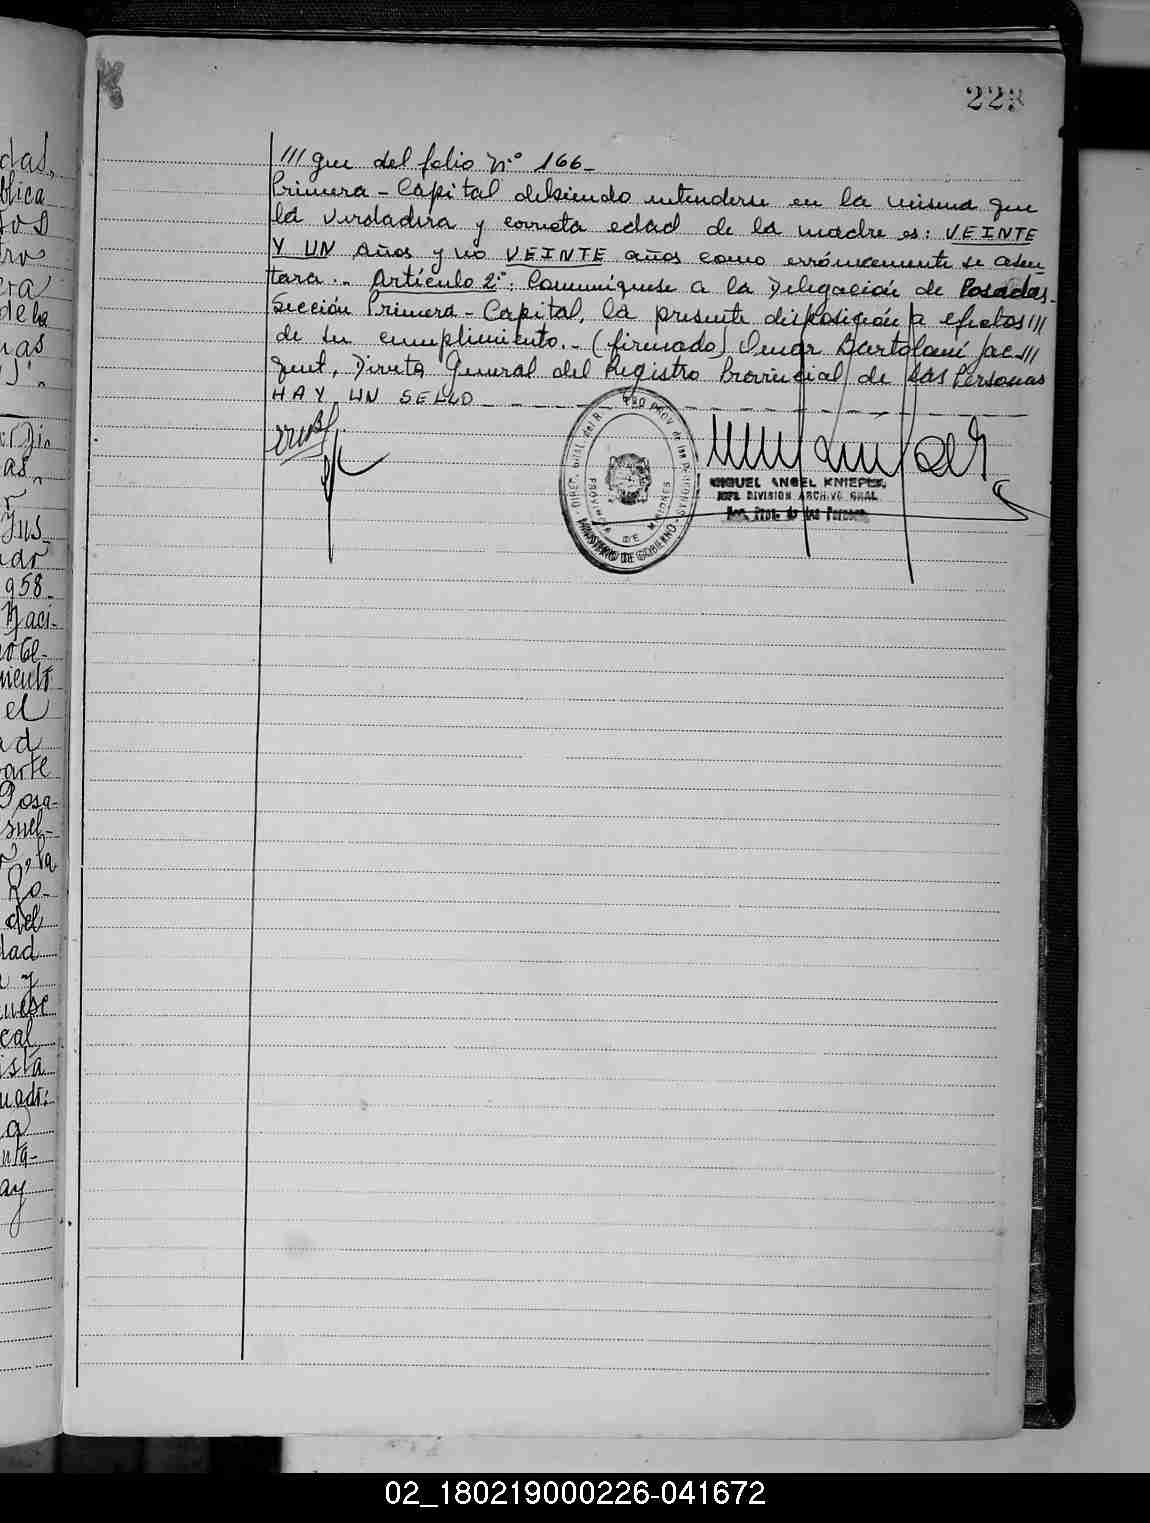 223
/// gue del folio Nº 166-
Primera - Capital debiendo entenderse en la misma que
la verdadera y correcta edad de la madre es: VEINTE
Y UN años y no VEINTE años como erróneamente se asen-
tara.- Artículo 2º: Comuníquese a la Delegación de Posadas-
Sección Primera - Capital, la presente disposición a efectos ///
de su cumplimiento.- (firmado) Omar Bartolomé Jac- ///
quet, Director General del Registro Provincial de las Personas
HAY UN SELLO
DIREC. GRAL. del R. PROV de las PERSONAS
PROVINCIA DE MISIONES
MINISTERIO DE GOBIERNO
MIGUEL ANGEL KNIEPER
JEFE DIVISION ARCHIVO GRAL.
Reg. Prov. de las Personas
das,
blica
tro
era
de la
as
Jus-
1958-
Naci-
miento
el
ad
parte
Posa-
suel-
, la
Ro-
del
dad
a y
quese
cal
ista
madr:
a
nta-
ay
02_180219000226-041672